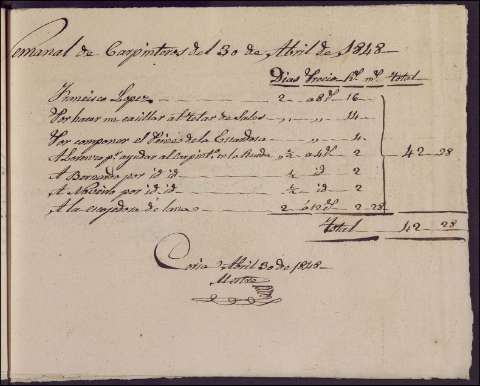 Semanal de Carpinteros del 30 de Abril de 1848
Dias Precio Rs. ms. total
Francisco Lopez 2 a 8 rs. 16
Por hacer un casillar al telar de Sales " " 14
Por componer el de la " " 4
A Lorenzo pa. ayudar al Carpinto. en la ½ a 4 rs. 2 42 28
A Bernardo por id id ½ id 2
A por id id ½ id 2
A la de lana 2 2 28
Total 42 28
Coria Abril 30 de 1848